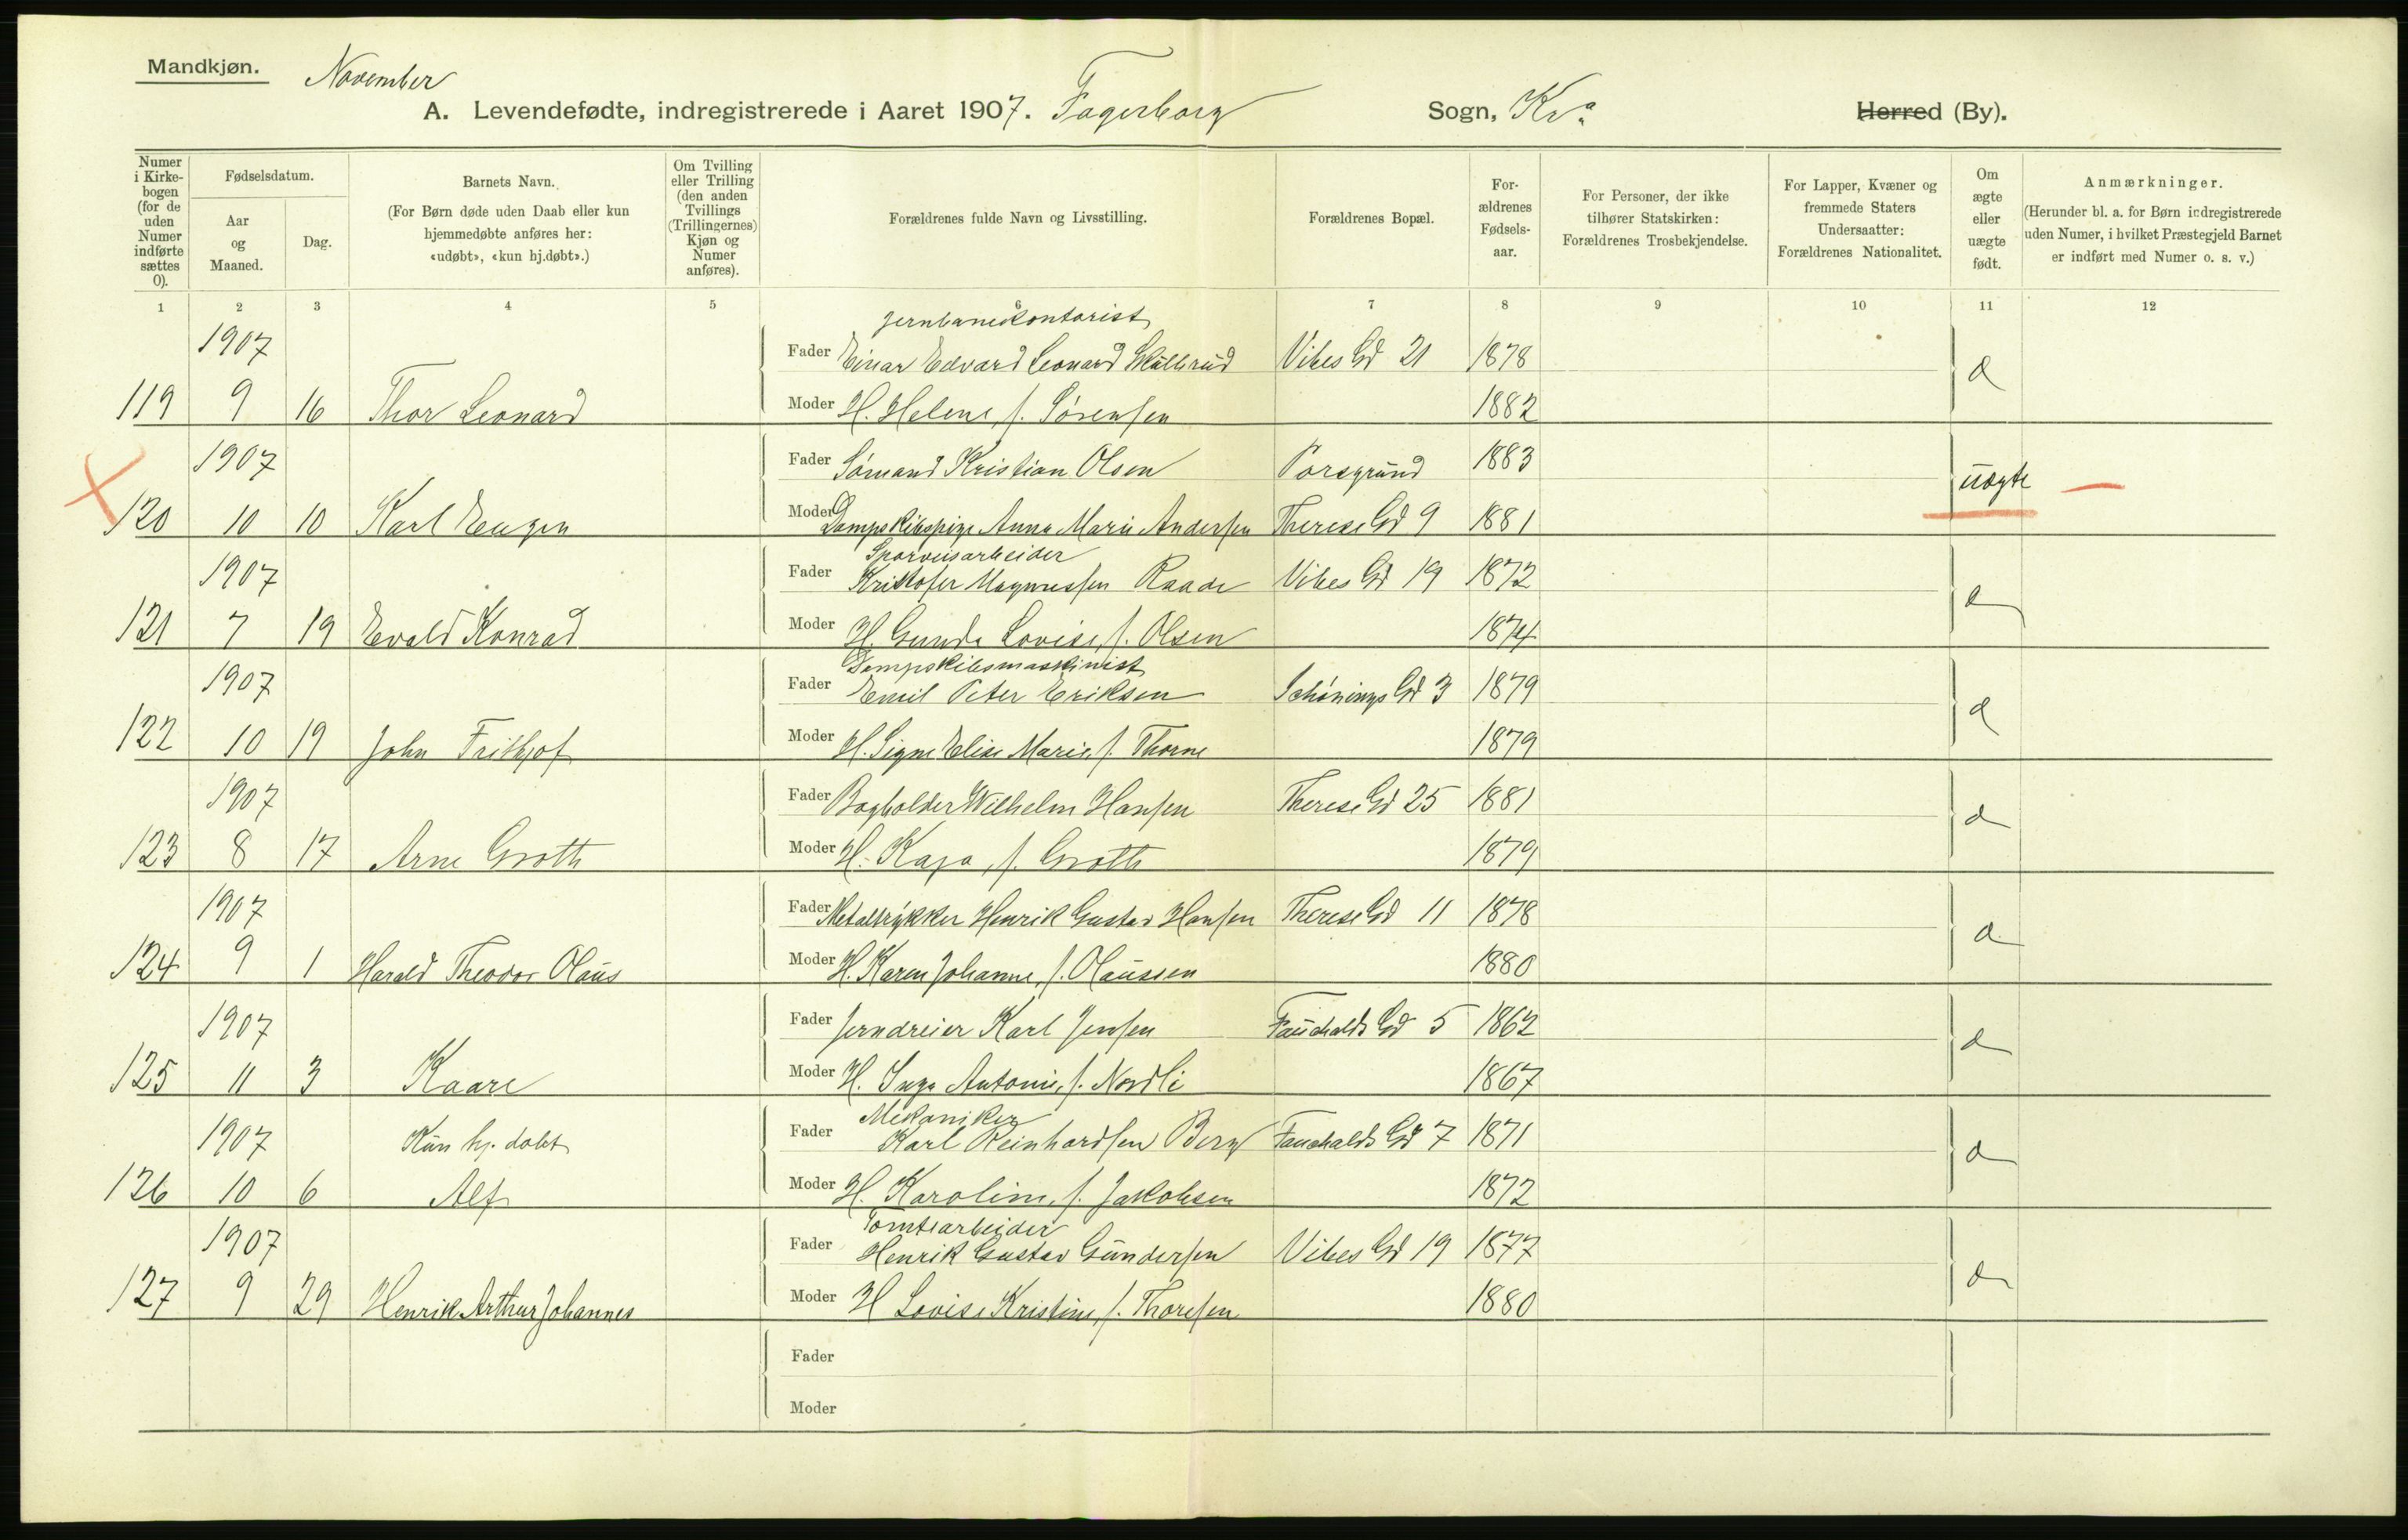 Mandkjøn.
November
A. Levendefødte, indregistrerede i Aaret 1907. Fagerborg Sogn, Kr.a Herred (By).
Numer i Kirkebogen (for de uden Numer indførte sættes 0).
Fødselsdatum.
Aar og Maaned.
Dag.
Barnets Navn.
(For Børn døde uden Daab eller kun hjemmedøbte anføres her: «udøbt», «kun hj.døbt».)
Om Tvilling eller Trilling (den anden Tvillings (Trillingernes) Kjøn og Numer anføres).
Forældrenes fulde Navn og Livsstilling.
Forældrenes Bopæl.
Forældrenes Fødselsaar.
For Personer, der ikke tilhører Statskirken: Forældrenes Trosbekjendelse.
For Lapper, Kvæner og fremmede Staters Undersaatter: Forældrenes Nationalitet.
Om ægte eller uægte født.
Anmærkninger.
(Herunder bl. a. for Børn indregistrerede uden Numer, i hvilket Præstegjeld Barnet er indført med Numer o. s. v.)
1 2 3 4 5 6 7 8 9 10 11 12
Jernbanekontorist
1907 Fader Einar Edvard Leonard Skullerud Vibes Gd 21 1878
119 9 16 Thor Leonard Moder H. Helene, f. Sørensen 1882
1907 Fader Sømand Kristian Olsen Porsgrund 1883 uægte
120 10 10 Karl Eugen Moder Dampskibspige Anna Marie Andersen Therese Gd 9 1881
Sporveisarbeider
1907 Fader Kristofer Magnussen Raade Vibes Gd 19 1872
121 7 19 Evald Konrad Moder H. Gunda Lovise, f. Olsen 1874
Dampskibsmaskinist
1907 Fader Emil Peter Eriksen Schönings Gd 3 1879
122 10 19 John Frithjof Moder H. Signe Elise Marie, f. Thorne 1879
1907 Fader Bogholder Wilhelm Hansen Therese Gd 25 1881
123 8 17 Arne Groth Moder H. Kaja, f. Groth 1879
1907 Fader Metaltrykker Henrik Gustav Hansen Therese Gd 11 1878
124 9 1 Harald Theodor Olaus Moder H. Karen Johanne, f. Olaussen 1880
1907 Fader Jerndreier Karl Jensen Fauchalds Gd 5 1862
125 11 3 Kaare Moder H. Inga Antonie, f. Nordli 1867
Mekaniker
1907 Kun hj. døbt Fader Karl Reinhardsen Berg Fauchalds Gd 7 1871
126 10 6 Alf Moder H. Karoline, f. Jakobsen 1872
Tomtearbeider
1907 Fader Henrik Gustav Gundersen Vibes Gd 19 1877
127 9 29 Henrik Arthur Johannes Moder H Lovise Kristine, f. Thoresen 1880
Fader
Moder